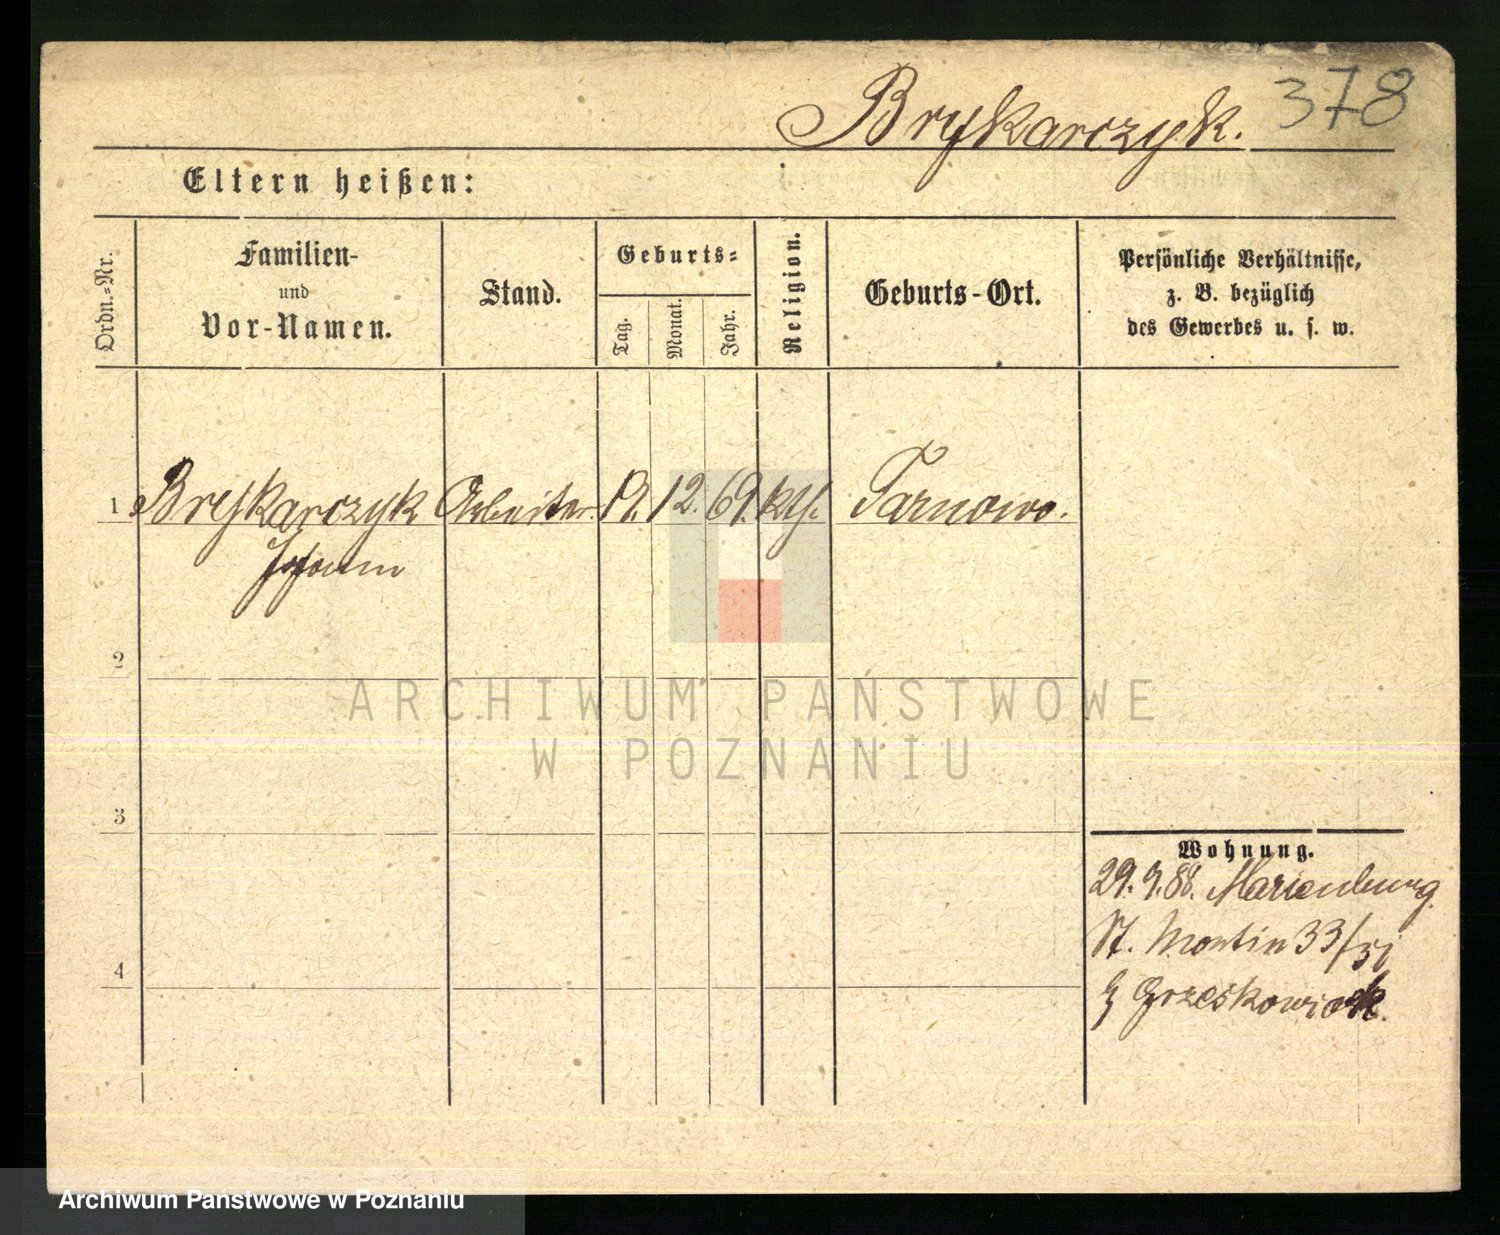 Brykarczyk. 378
Eltern heißen:
Ordn.-Nr.
Familien-
und
Vor-Namen.
Stand.
Geburts-
Tag.
Monat.
Jahr.
Religion.
Geburts-Ort.
Persönliche Verhältnisse,
z. B. bezüglich
des Gewerbes u. s. w.
1 Brykarczyk Arbeiter. 12. 69. kth. Tarnowo.
Johann
2
3
4
Wohnung.
29. 9. 88. Marienburg
St. Martin 33/
Grzeskowiak.
ARCHIWUM PAŃSTWOWE
W POZNANIU
Archiwum Państwowe w Poznaniu